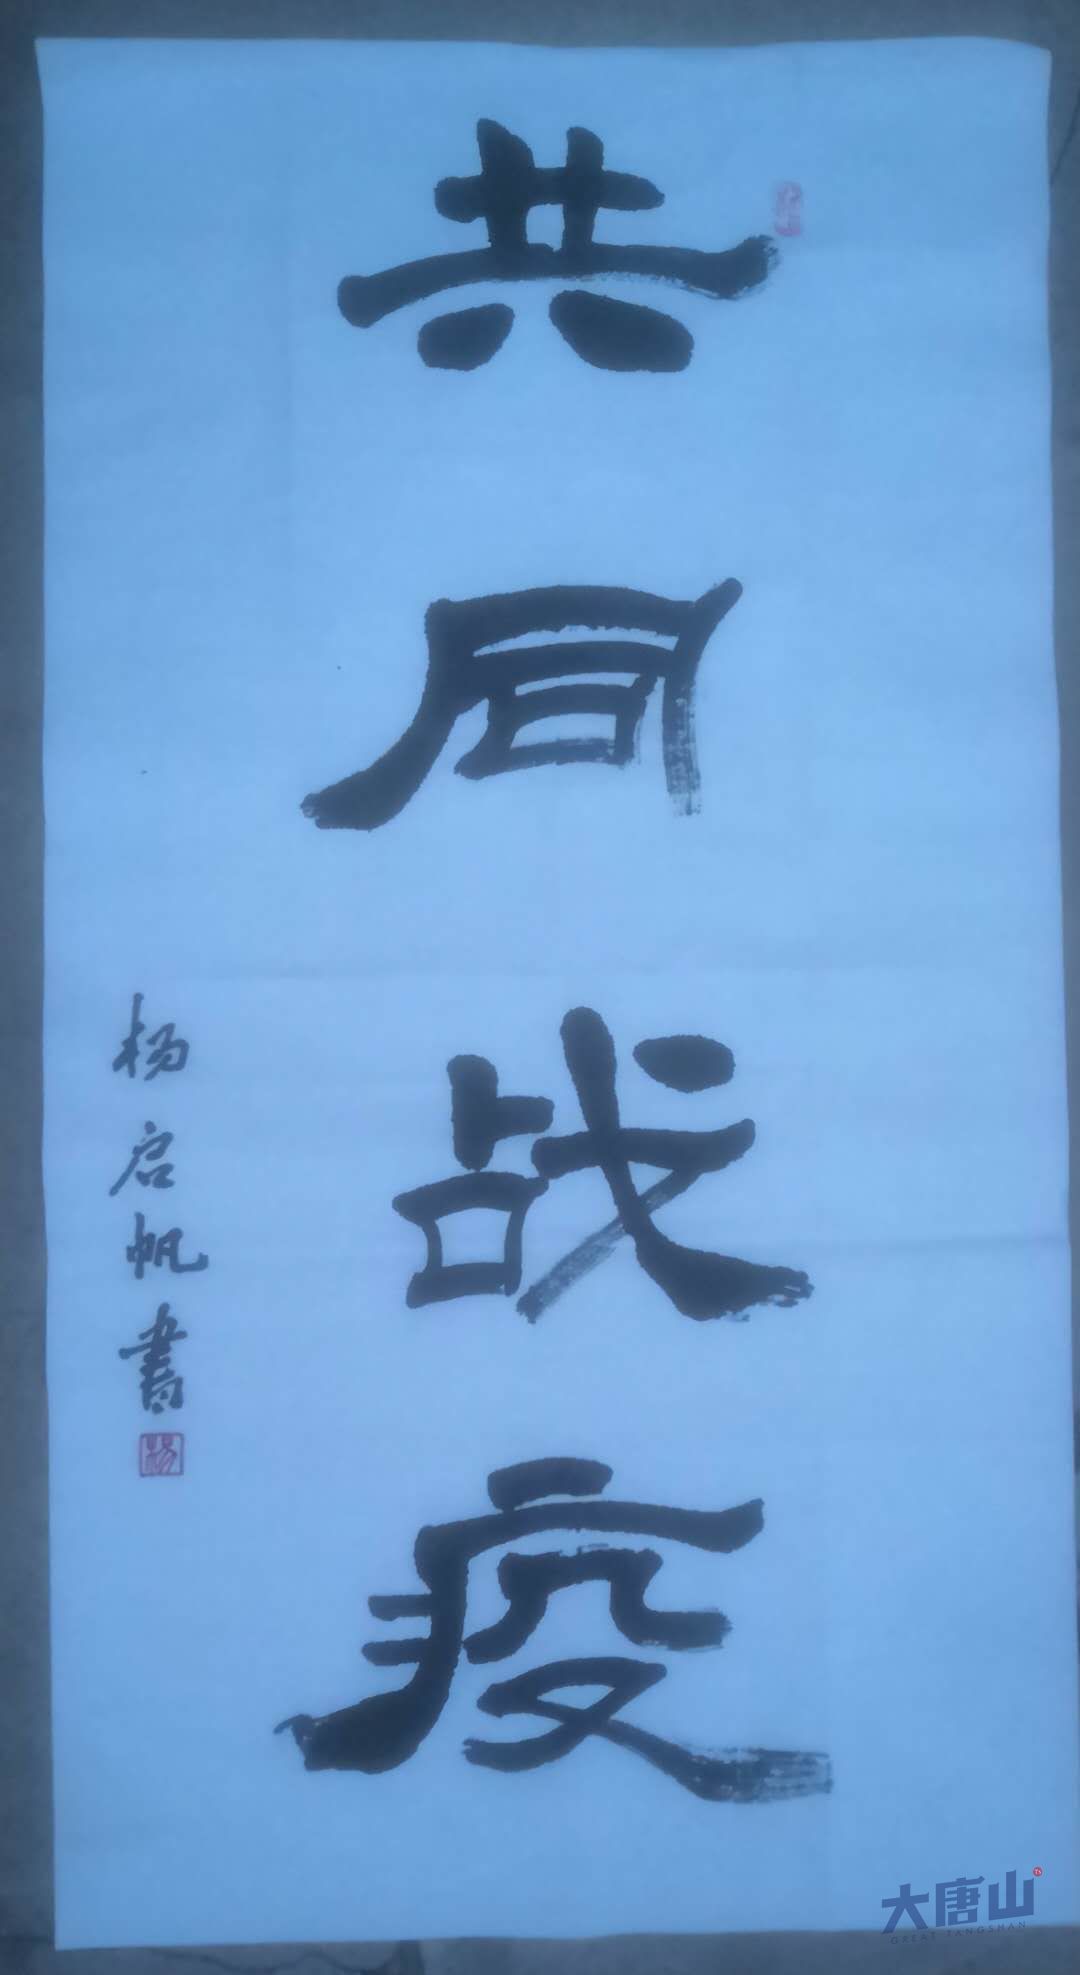 共同战疫
杨启帆書
杨
大唐山
GREAT TANGSHAN